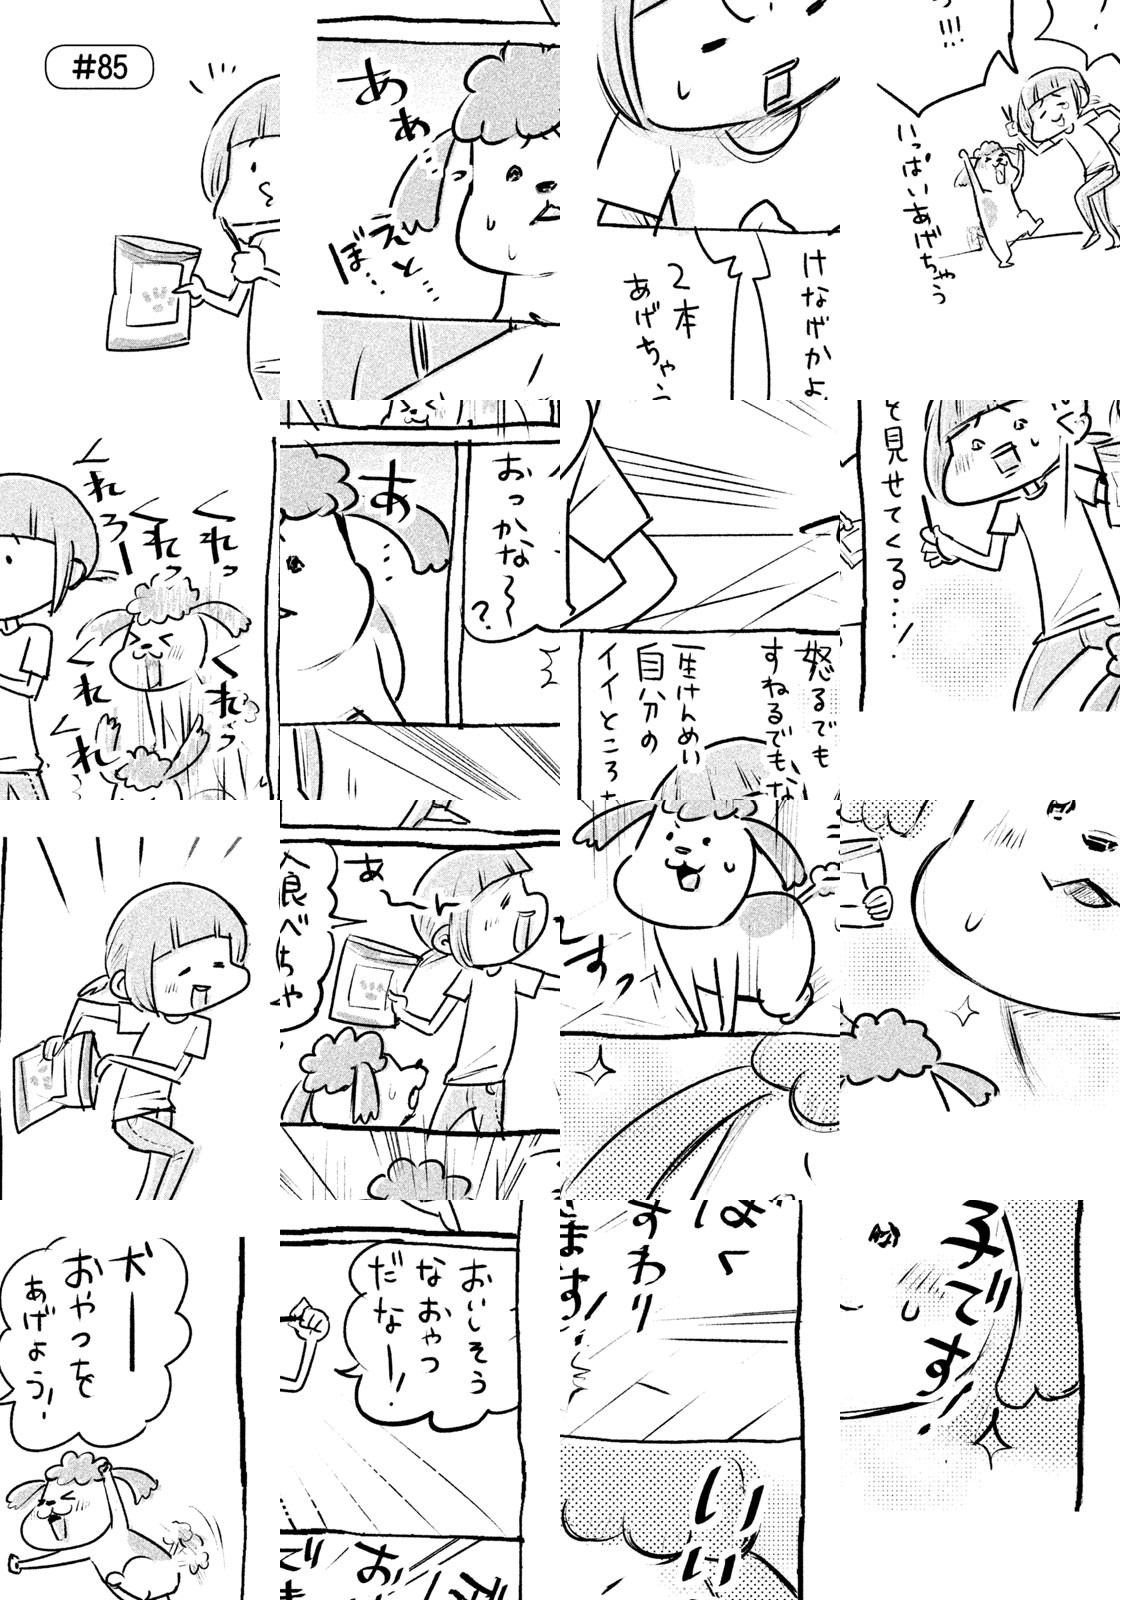 #85
あぁ…
と……
けなげかよ
2本
あげちゃう
いっぱいあげちゃう
くれっ
くれっ
くれろー
くれっ
くれ
おっかな〜?
あ…
怒るでも
すねるでもな
一生けんめい
自分の
イイところ
を見せてくる…!
あー
食べちゃ
すっ
犬ーー
おやつを
あげよう!
おいしそう
なおやつ
だなー!
お
でも
すわり
ます!
いい
子です!